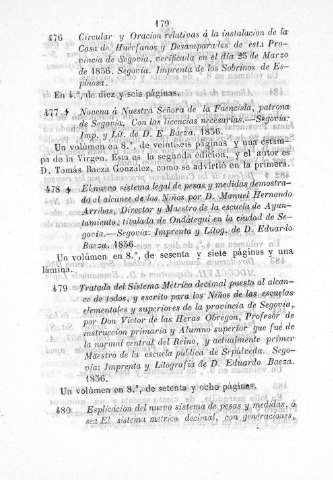 179
476 Circular y Oracion relativas á la instalacion de la
Casa de Huérfanos y Desamparados de esta Pro-
vincia de Segovia, verificada en el dia 25 de Marzo
de 1856. Segovia. Imprenta de los Sobrinos de Es-
pinosa.
En 4.°, de diez y seis páginas.
477 Novena á Nuestra Señora de la Fuencisla, patrona
de Segovia. Con las licencias necesarias.—Segovia:
Imp. y Lit. de D. E. Baeza. 1856.
Un volúmen en 8.°, de veintiseis páginas y una estam-
pa de la Virgen. Esta es la segunda edicion, y el autor es
D. Tomás Baeza Gonzalez, como se advirtió en la primera.
478 El nuevo sistema legal de pesas y medidas demostra-
do al alcance de los Niños por D. Manuel Hernando
Arribas, Director y Maestro de la escuela de Ayun-
tamiento; titulada de Ondátegui en la ciudad de Se-
govia.—Segovia: Imprenta y Litog. de D. Eduardo
Baeza. 1856.
Un volúmen en 8.°, de sesenta y siete páginas y una
lámina.
479 Tratado del Sistema Métrico decimal puesto al alcan-
ce de todos, y escrito para los Niños de las escuelas
elementales y superiores de la provincia de Segovia,
por Don Victor de las Heras Obregon, Profesor de
instruccion primaria y Alumno superior que fué de
la normal central del Reino, y actualmente primer
Maestro de la escuela pública de Sepúlveda. Sego-
via: Imprenta y Litografía de D. Eduardo Baeza.
1856.
Un volúmen en 8.°, de setenta y ocho páginas.
480 Esplicacion del nuevo sistema de pesas y medidas, ó
sea El sistema métrico decimal, con